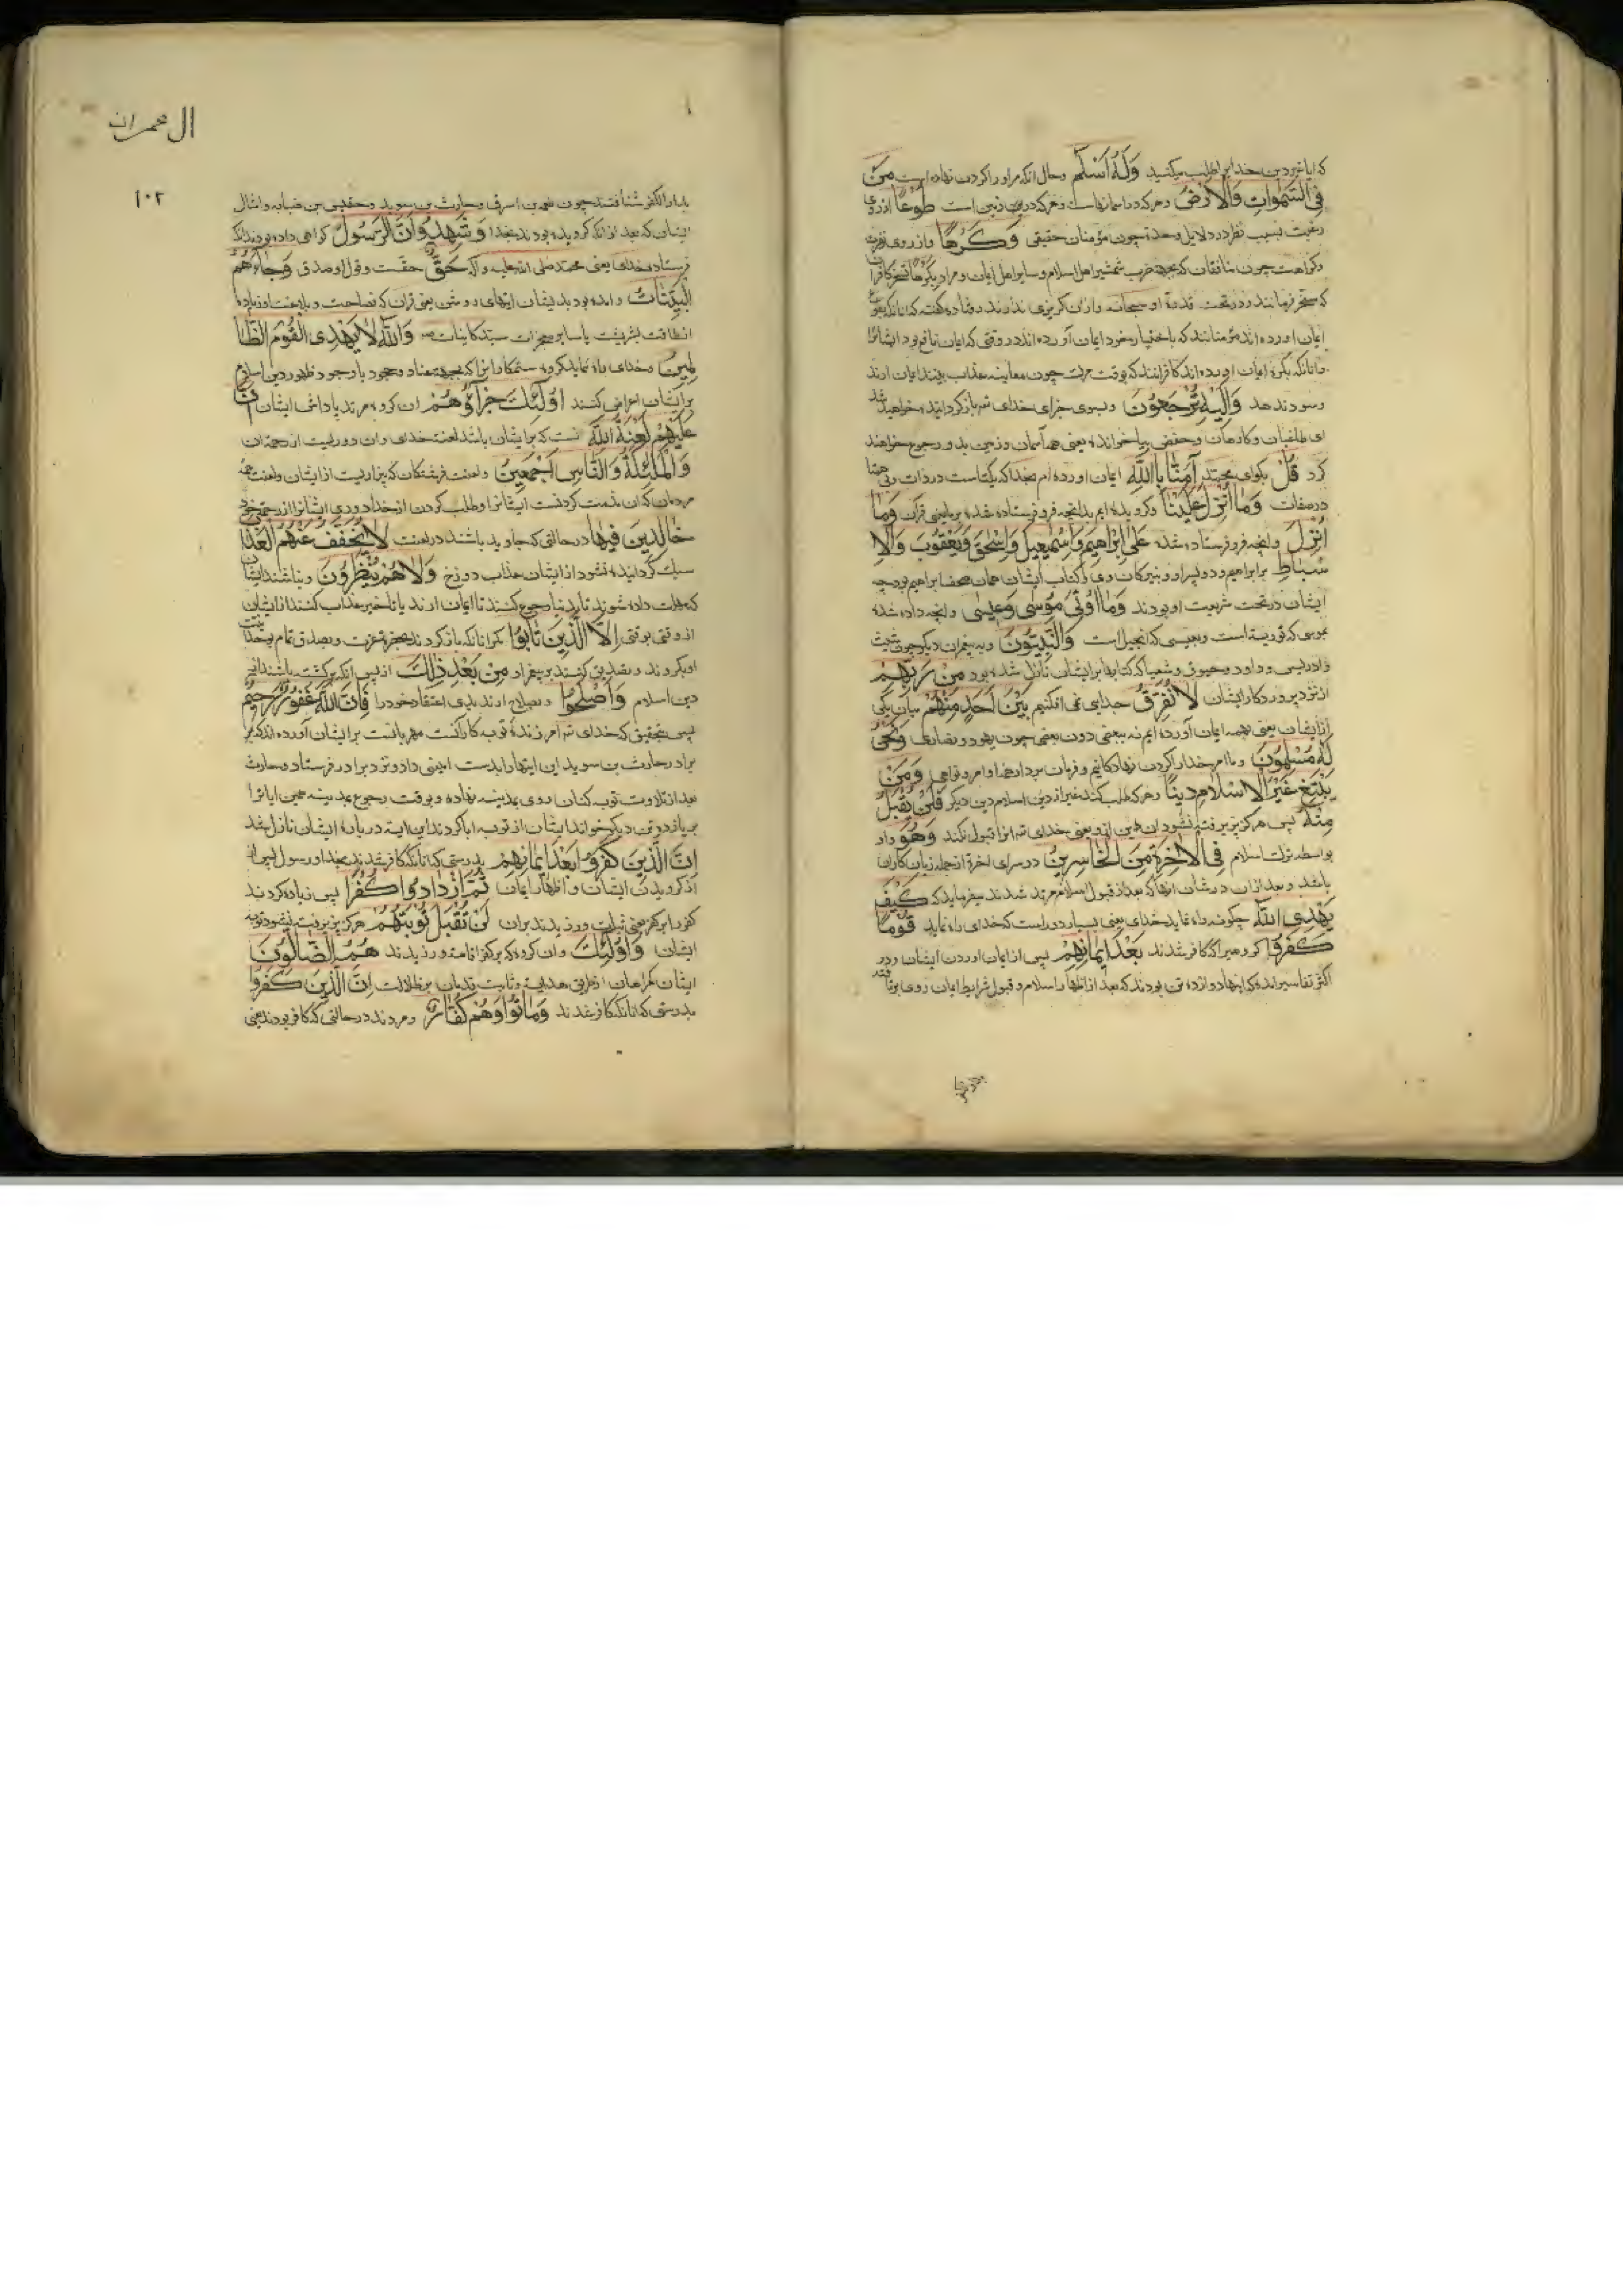 که ایا غیر دین خدایرا طلب میکنید وَلَهُ اَسْلَمَ وحال انکه مر اورا کردن نهاده است مَنْ
فِی السَّمٰوَاتِ وَالْاَرْضِ وهرکه در اسمانهاست وهرکه در زمین است طَوْعًا ازروی
رغبت بسبب نظر در دلایل وحدت چون مؤمنان حقیقی وَکَرْهًا واز روی نفرت
وکراهت چون منافقان که بجهة ضرب شمشیر اهل اسلام وسایر اهل ایمان ومراد بکرهًا
که مسخر فرمانند ودر تحت قدرة او سبحانه وازان کریزی ندارند وقتاده گفته که انانکه بطوع
ایمان اورده اند مؤمنانند که باختیار خود ایمان آورده اند در وقتی که ایمان نافع بود ایشانرا
وانانکه بکره ایمان اورده اند کافرانند که بوقت مرك چون معاینه عذاب بینند ایمان ارند
وسود ندهد وَاِلَیْهِ تُرْجَعُونَ وبسوی جزای خدای تع باز کردانیده خواهید شد
ای مکلفان وحفص بیا خوانده یعنی همه آسمان وزمین بدو رجوع خواهند
کرد قُلْ بکوای محمد آمَنَّا بِاللّٰهِ ایمان اورده ام بخدا که یکتاست در ذات وبی همتا
در صفات وَمَا اُنْزِلَ عَلَیْنَا وکرویده ایم بدانچه فرو فرستاده شده بر ما یعنی قرآن وَمَا
اُنْزِلَ وانچه فرو فرستاده شده عَلٰی اِبْرٰاهِیمَ وَاِسْمٰعِیلَ وَاِسْحٰقَ وَیَعْقُوبَ وَالْاَ
سْبَاطِ بر ابراهیم ودو پسر او ونبیرکان وی وکتاب ایشان همان صحف ابراهیم بود چه
ایشان در تحت شریعت او بودند وَمَا اُوتِیَ مُوسٰی وَعِیسٰی وانچه داده شده
بموسی که توریة است وبعیسی که انجیل است وَالنَّبِیُّونَ وبه پیغمبران دیکر چون شیث
وادریس وداود وحیقوق وشعیا که کتابها بر ایشان نازل شده بود مِنْ رَبِّهِمْ
از نزد پروردکار ایشان لَا نُفَرِّقُ جدایی نمی افکنیم بَیْنَ اَحَدٍ مِنْهُمْ میان یکی
از ایشان یعنی بهمه ایمان آورده ایم نه ببعضی دون بعضی چون یهود ونصاری وَنَحْنُ
لَهُ مُسْلِمُونَ وما مر خدارا کردن نهادکانیم وفرمان بردار اوامر ونواهی وَمَنْ
یَبْتَغِ غَیْرَ الْاِسْلَامِ دِینًا وهرکه طلب کند غیر از دین اسلام دین دیکر فَلَنْ یُقْبَلَ
مِنْهُ پس هرکز پذیرفته نشود ان دین ازو یعنی خدای تع انرا قبول نکند وَهُوَ واو
بواسطه ترك اسلام فِی الْاٰخِرَةِ مِنَ الْخَاسِرِینَ در سرای اخرة از جمله زیان کاران
باشد وبعد ازان در شان انها که بعد از قبول اسلام مرتد شدند میفرماید که کَیْفَ
یَهْدِی اللّٰهُ چکونه راه نماید خدای یعنی بسیار دور است که خدای راه نماید قَوْمًا
کَفَرُوا کروهیرا که کافر شدند بَعْدَ اِیمَانِهِمْ پس از ایمان اوردن ایشان ودر
اکثر تفاسیر که اینها دوازده تن بودند که بعد از اظهار اسلام وقبول شرایط ایمان روی
ال عمران
۱۰۲
بدار الکفر شتافتند چون وحارث بن سوید
ایشان که بعد از انکه کرویده بودند بخدا وَشَهِدُوا اَنَّ الرَّسُولَ کواهی داده بودند انکه
فرستاده خدای یعنی محمد صلی الله علیه وآله حَقٌّ حقست وقول او صدق وَجَاءَهُمُ
الْبَیِّنَاتُ وامده بود بدیشان ایتهای روشن یعنی قران که فصاحت وبلاغت او زیاده
از طاقت بشریست یا سایر معجزات سید کاینات وَاللّٰهُ لَا یَهْدِی الْقَوْمَ الظَّا
لِمِینَ وخدای راه ننماید کروه ستمکارانرا که بجهة عناد وجحود با وجود ظهور دین اسلام
بر ایشان اعراض کنند اُولٰئِكَ جَزَاؤُهُمْ ان کروه مرتد پاداش ایشان اَنَّ
عَلَیْهِمْ لَعْنَةَ اللّٰهِ انست که بر ایشان باشد لعنت خدای وان دوریست از رحمة ان
وَالْمَلٰئِکَةِ وَالنَّاسِ اَجْمَعِینَ ولعنت فرشتکان که بیزاریست از ایشان ولعنت همه
مردمان که ان مذمت کردنست ایشانرا وطلب کردن از خدا دوری ایشانرا از رحمتی خود
خَالِدِینَ فِیهَا در حالتی که جاوید باشند در لعنت لَا یُخَفَّفُ عَنْهُمُ الْعَذَابُ
سبك کردانیده نشود از ایشان عذاب دوزخ وَلَا هُمْ یُنْظَرُونَ ونباشند ایشان
که مهلت داده شوند تا بدنیا رجوع کنند تا ایمان ارند یا تاخیر عذاب کنند از ایشان
از وقتی بوقتی اِلَّا الَّذِینَ تَابُوا مکر انانکه باز کردند
اوبکروند وتصدیق کنند بر پیغمبر او مِنْ بَعْدِ ذٰلِكَ از پس انکه برکشته باشند از
دین اسلام وَاَصْلَحُوا وبصلاح ارند بدی اعتقاد خودرا فَاِنَّ اللّٰهَ غَفُورٌ رَحِیمٌ
پس بتحقیق که خدای تع امرزندهٔ توبه کارانست مهربانست بر ایشان آورده اند که
برادر حارث بن سوید این ایتهارا بدست امینی داد ونزد برادر فرستاد وحارث
بعد از تلاوت توبه کنان روی بمدینه نهاده وبوقت رجوع بمدینه همین ایاترا
بر یازده تن دیکر خواند ایشان از توبه ابا کردند این ایه در باره ایشان نازل شد
اِنَّ الَّذِینَ کَفَرُوا بَعْدَ اِیمَانِهِمْ بدرستی که انانکه کافر شدند بخدا ورسول پس از
کرویدن ایشان واظهار ایمان ثُمَّ ازْدَادُوا کُفْرًا پس زیاده کردند
کفر را بر کفر یعنی ثبات ورزیدند بران لَنْ تُقْبَلَ تَوْبَتُهُمْ هرکز پذیرفته نشود توبه
ایشان وَاُولٰئِكَ وان کروه که بر کفر اقامت ورزیدند هُمُ الضَّالُّونَ
ایشان کمراهان از طریق هدایت وثابت قدمان بر ضلالت اِنَّ الَّذِینَ کَفَرُوا
بدرستی که انانکه کافر شدند وَمَاتُوا وَهُمْ کُفَّارٌ ومردند در حالتی که کافر بودند یعنی